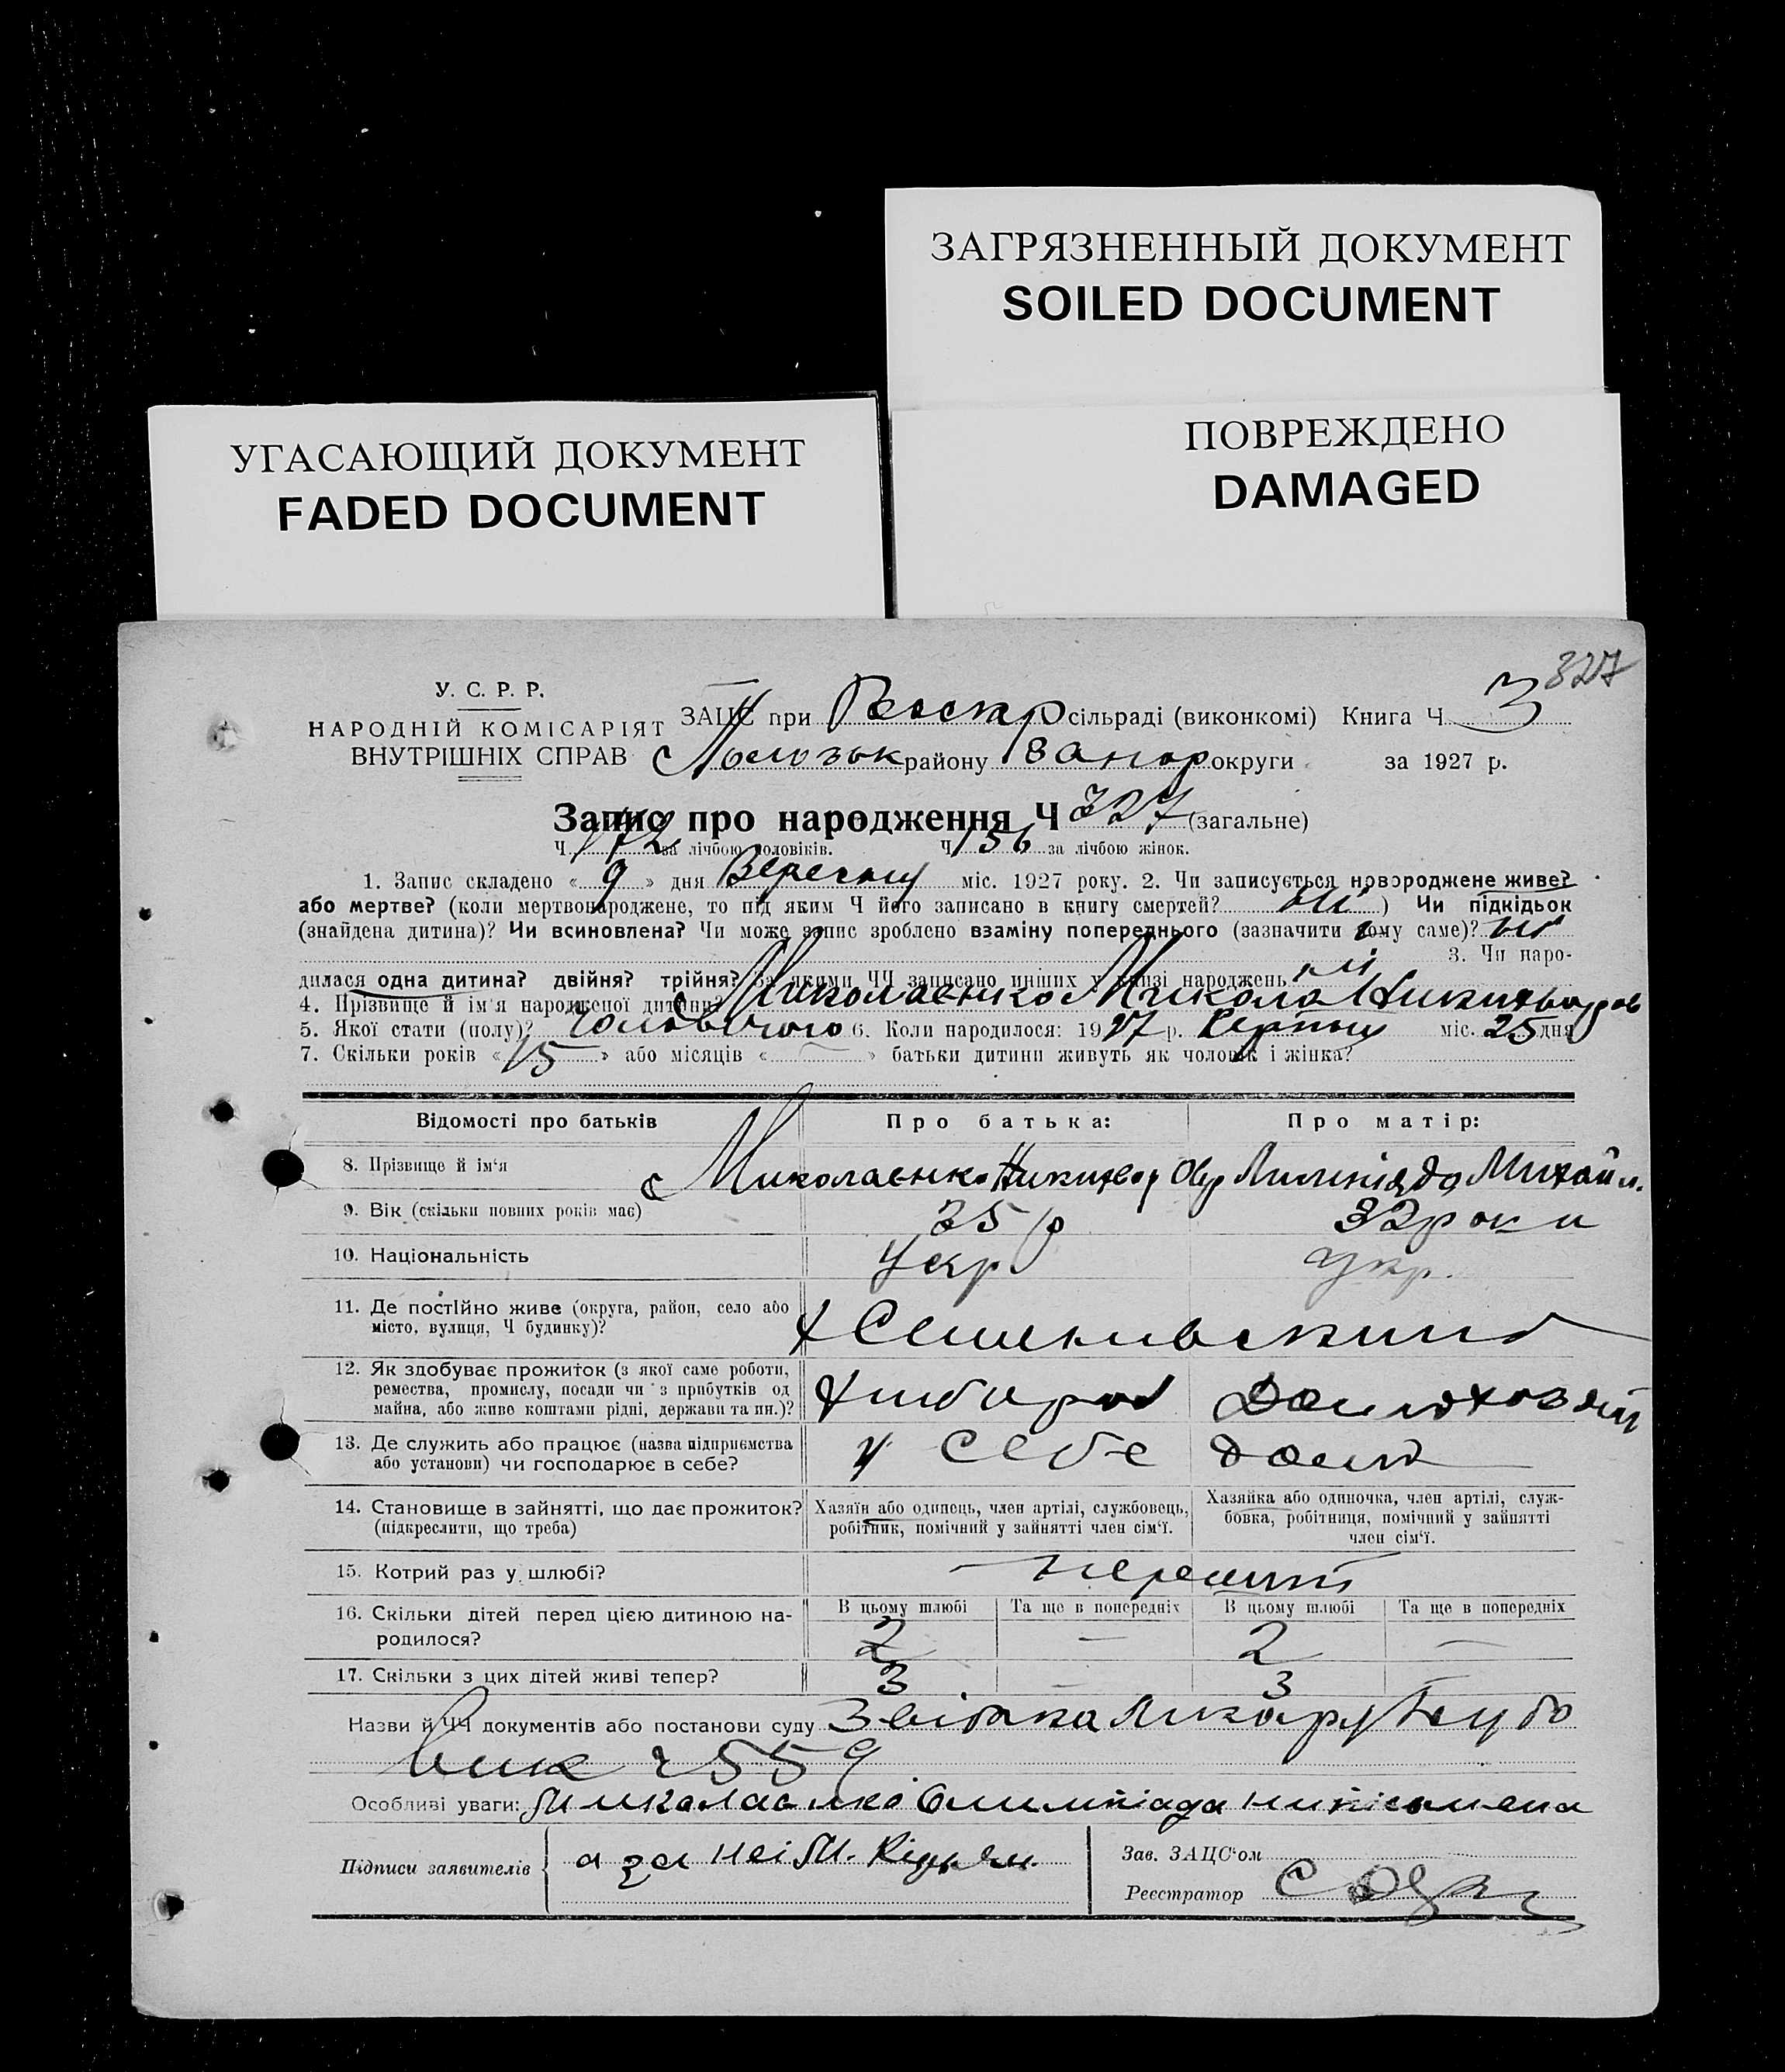 ЗАГРЯЗНЕННЫЙ ДОКУМЕНТ
SOILED DOCUMENT
УГАСАЮЩИЙ ДОКУМЕНТ
FADED DOCUMENT
ПОВРЕЖДЕНО
DAMAGED
327
У. С. Р. Р.
НАРОДНІЙ КОМІСАРІЯТ
ВНУТРІШНІХ СПРАВ
ЗАЦС при сільраді (виконкомі) Книга Ч. 3
району Запор округи за 1927 р.
Запис про народження Ч 327 (загальне)
Ч. 172 за лічбою чоловіків. Ч. 156 за лічбою жінок.
1. Запис складено « 9 » дня Вересня міс. 1927 року. 2. Чи записується новороджене живе?
або мертве? (коли мертвонароджене, то під яким Ч його записано в книгу смертей? ні ) Чи підкідьок
(знайдена дитина)? Чи всиновлена? Чи може запис зроблено взаміну попереднього (зазначити кому саме)? ні
3. Чи наро-
дилася одна дитина? двійня? трійня? За якими ЧЧ записано инших у книзі народжень ні
4. Прізвище й ім'я народженої дитини Миколаєнко Микола
5. Якої стати (полу)? чоловічого 6. Коли народилося: 1927 р. Серпня міс. 25 дня
7. Скільки років « 15 » або місяців « — » батьки дитини живуть як чоловік і жінка?
Відомості про батьків Про батька: Про матір:
8. Прізвище й ім'я Миколаєнко Никифор Михайл.
9. Вік (скільки повних років має) 35 р 32 роки
10. Національність Укр Укр.
11. Де постійно живе (округа, район, село або
місто, вулиця, Ч будинку)?
12. Як здобуває прожиток (з якої саме роботи,
ремества, промислу, посади чи з прибутків од
майна, або живе коштами рідні, держави та ин.)? хлібороб
13. Де служить або працює (назва підприємства
або установи) чи господарює в себе? у себе дома
14. Становище в зайнятті, що дає прожиток?
(підкреслити, що треба)
Хазяїн або одинець, член артілі, службовець,
робітник, помічний у зайнятті член сім'ї.
Хазяйка або одиночка, член артілі, служ-
бовка, робітниця, помічний у зайнятті
член сім'ї.
15. Котрий раз у шлюбі? перший
16. Скільки дітей перед цією дитиною на-
родилося?
В цьому шлюбі Та ще в попередніх В цьому шлюбі Та ще в попередніх
2 — 2 —
17. Скільки з цих дітей живі тепер? 3 — 3 —
Назви й ЧЧ документів або постанови суду
559
Особливі уваги: Миколаєнко Олимпіада
Підписи заявителів а за неї
Зав. ЗАЦС'ом
Реєстратор